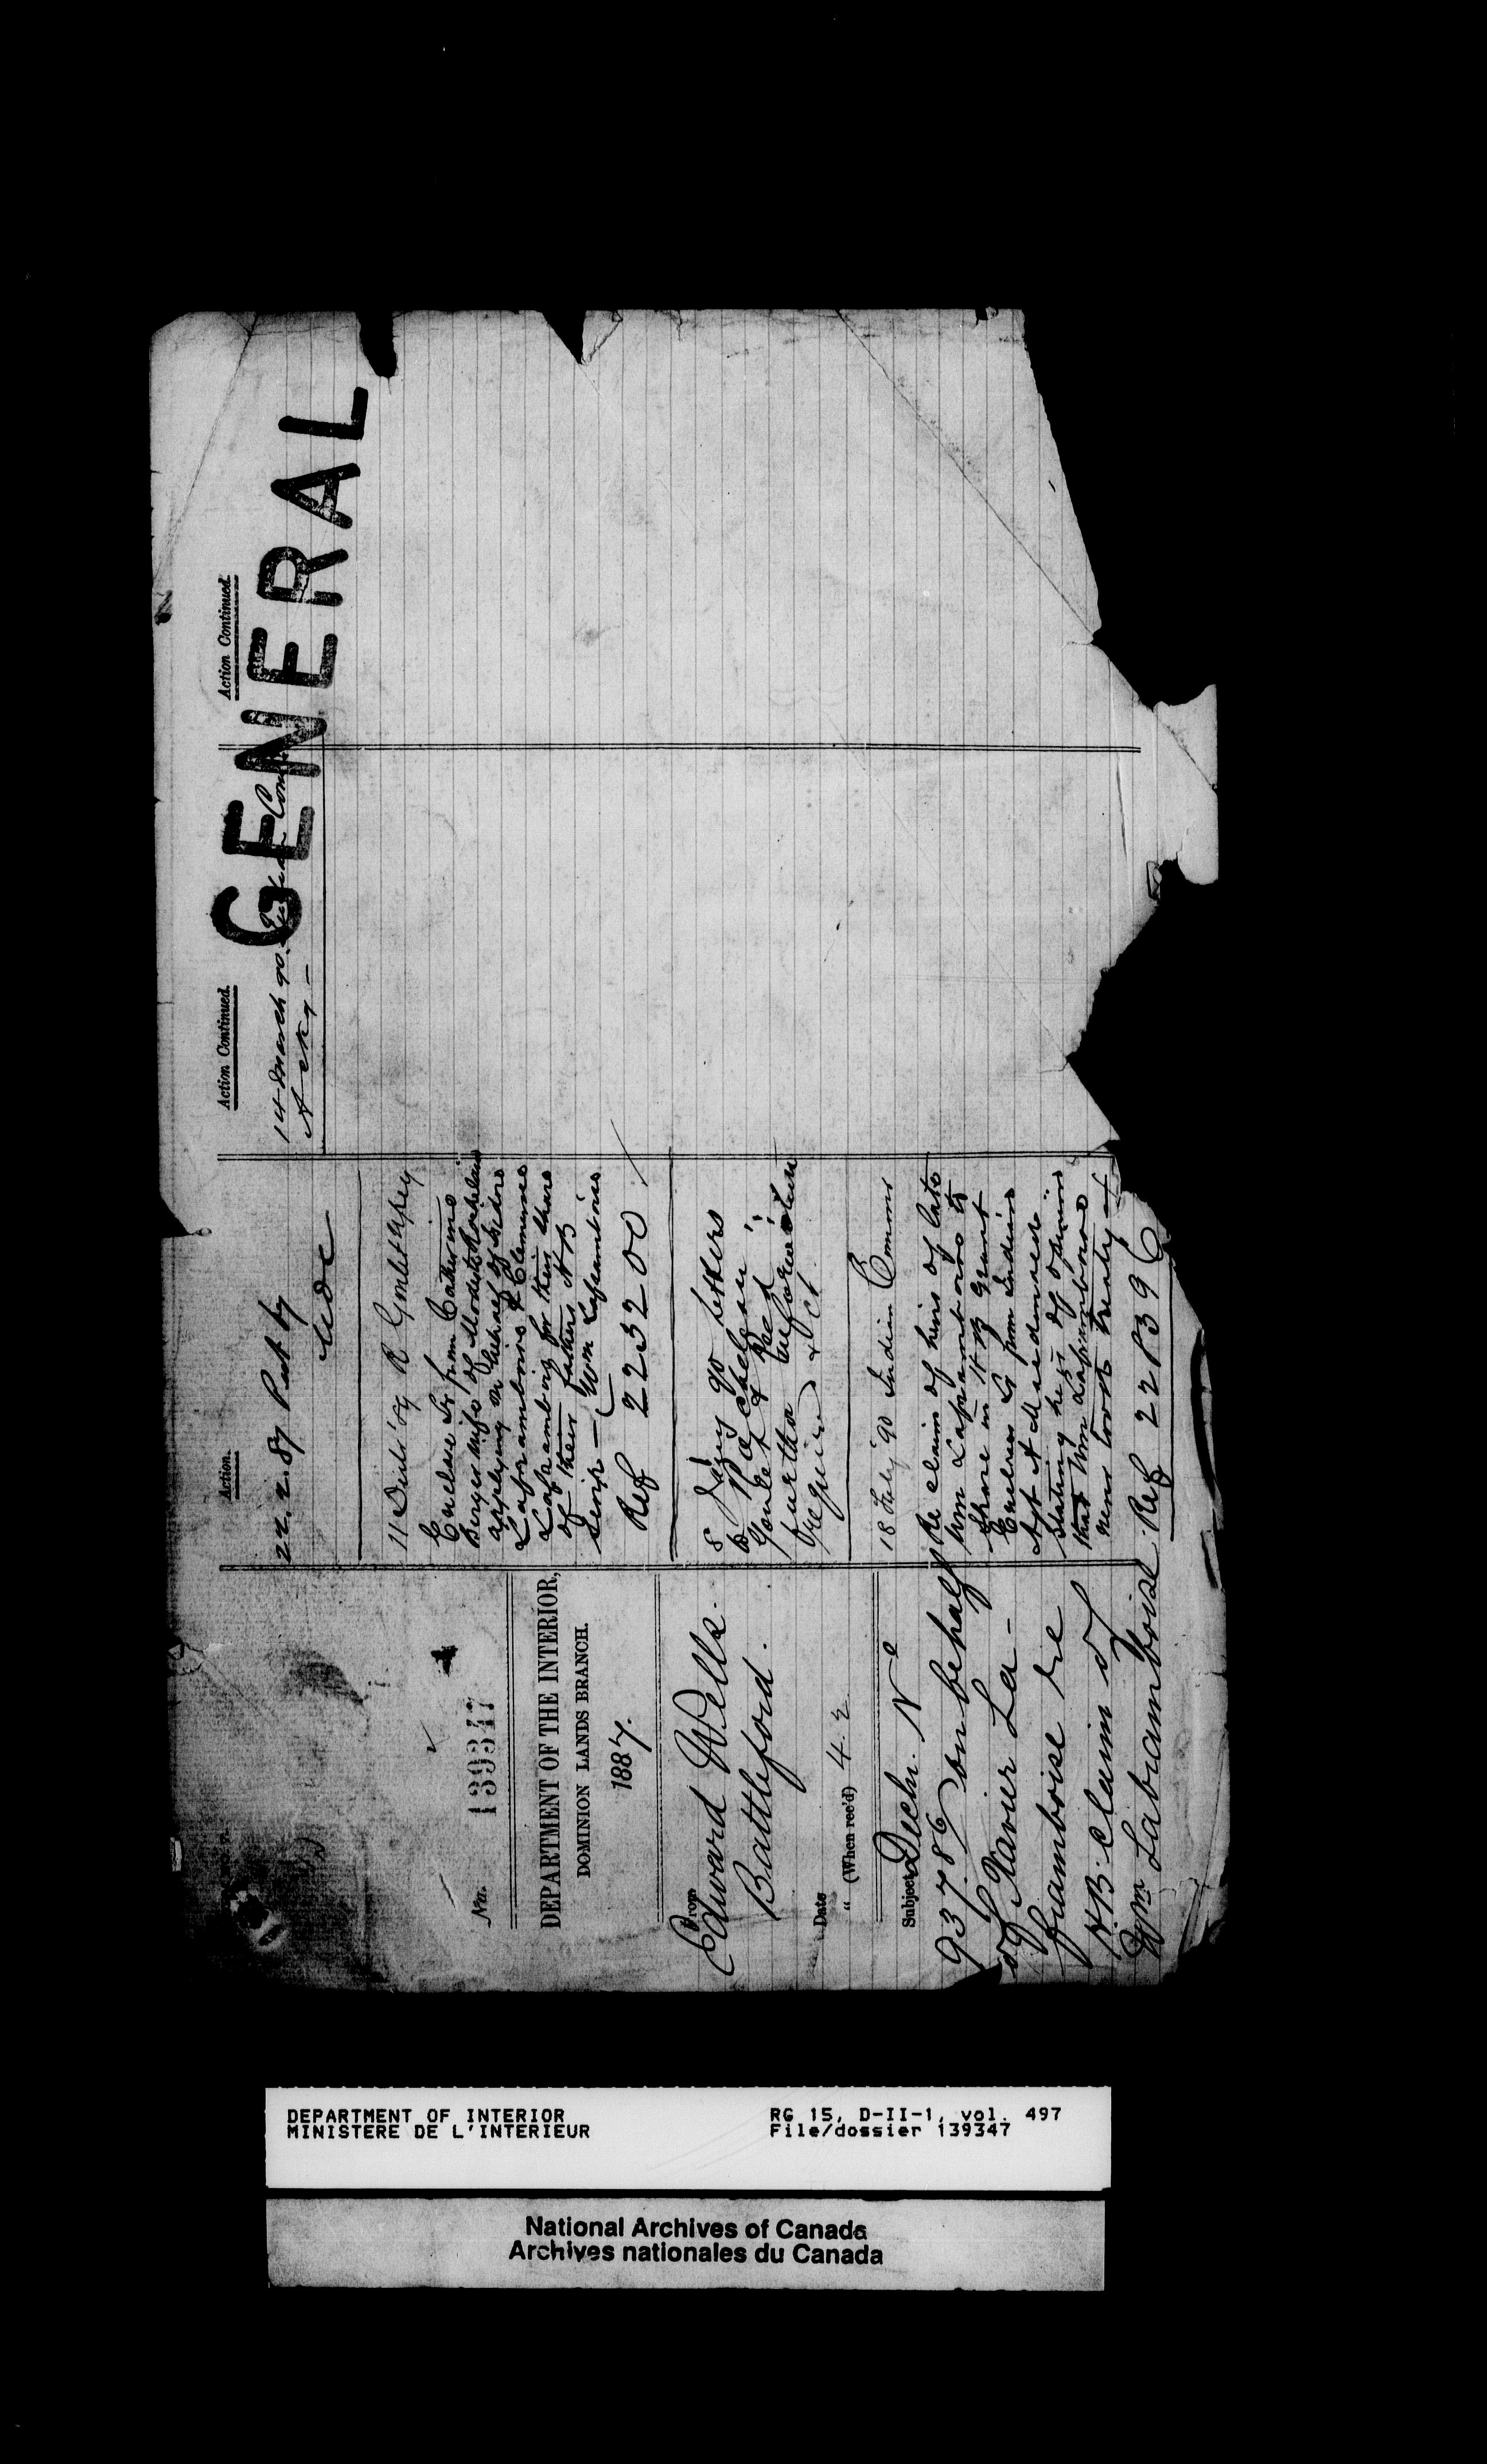 No. 139347
DEPARTMENT OF THE INTERIOR,
DOMINION LANDS BRANCH.
1887.
From
Edward Wells.
Battleford.
Date
" (When rec'd) 4.2
Subject
Decln.
93786 on behalf
of Xavier La-
framboise re
H.B. claim of
Wm Laframboise
Action.
22.2.87 Put by
11 Decbr 89 R
Enclose Lr from Catherine
wife of Modeste
applying on behalf of Isidore
Laframboise & Clemence
Laframboise for their share
of their father's HB
Scrip — Wm Laframboise
Ref 223200
8 Jany 90 letters
to
Goulet &
further information
required
18 Feby 90 Indian Comnr
Re claim of heirs of late
Wm Laframboise to
share in HB grant
Encloses Lr from Indian
Agt
stating he is of opinion
that Wm Laframboise
never took treaty
Ref 227839
Action Continued.
14 March 90.
Ackg —
Action Continued.
GENERAL
DEPARTMENT OF INTERIOR
MINISTERE DE L'INTERIEUR
RG 15, D-II-1, vol. 497
File/dossier 139347
National Archives of Canada
Archives nationales du Canada